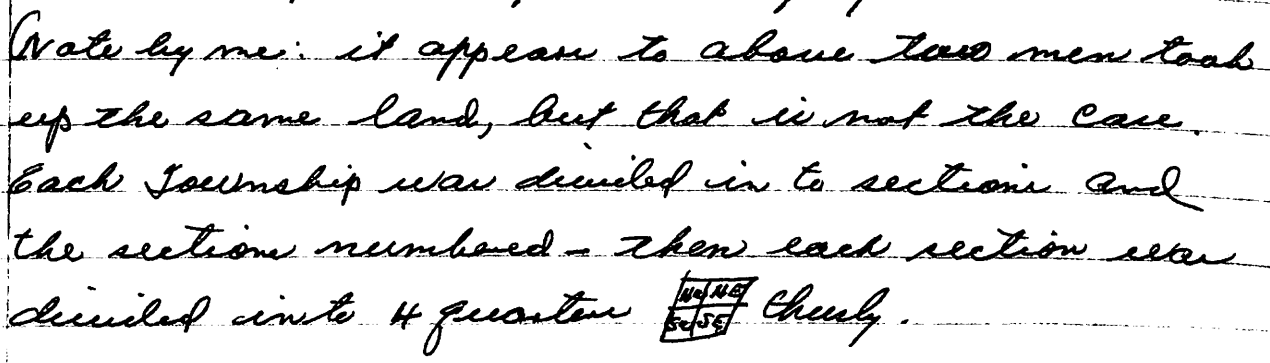 (Note by me: it appears to above two men took
up the same land, but that is not the case.
Each Township was divided in to sections and
the sections numbered - then each section was
divided into 4 quarters NW NE thusly.
SW SE